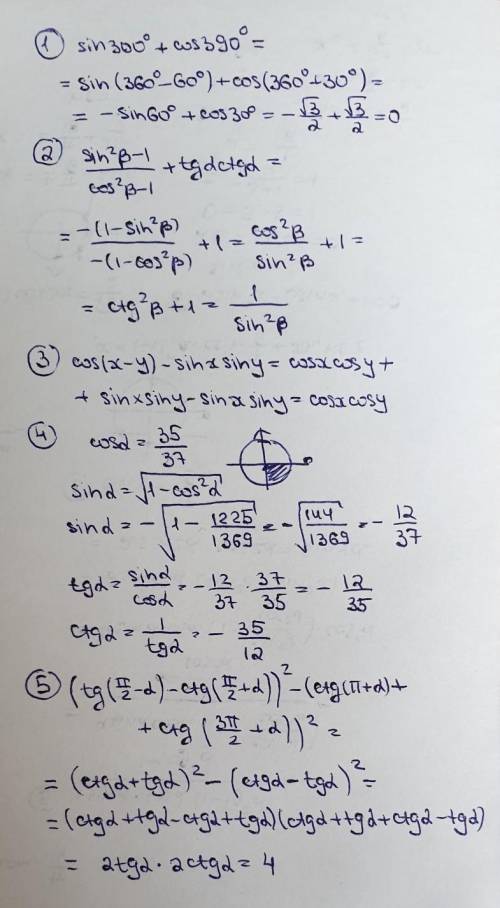 ① sin300° + cos390° =
= sin(360°-60°) + cos(360°+30°) =
= -sin60° + cos30° = -√3/2 + √3/2 = 0
② (sin²β-1)/(cos²β-1) + tgα ctgα =
= -(1-sin²β)/-(1-cos²β) + 1 = cos²β/sin²β + 1 =
= ctg²β + 1 = 1/sin²β
③ cos(x-y) - sinx siny = cosx cosy +
+ sinx siny - sinx siny = cosx cosy
④ cosα = 35/37
sinα = √(1-cos²α)
sinα = -√(1 - 1225/1369) = -√(144/1369) = -12/37
tgα = sinα/cosα = -12/37 · 37/35 = -12/35
ctgα = 1/tgα = -35/12
⑤ (tg(π/2-α) - ctg(π/2+α))² - (ctg(π+α) +
+ ctg(3π/2+α))² =
= (ctgα + tgα)² - (ctgα - tgα)² =
= (ctgα + tgα - ctgα + tgα)(ctgα + tgα + ctgα - tgα)
= 2tgα · 2ctgα = 4